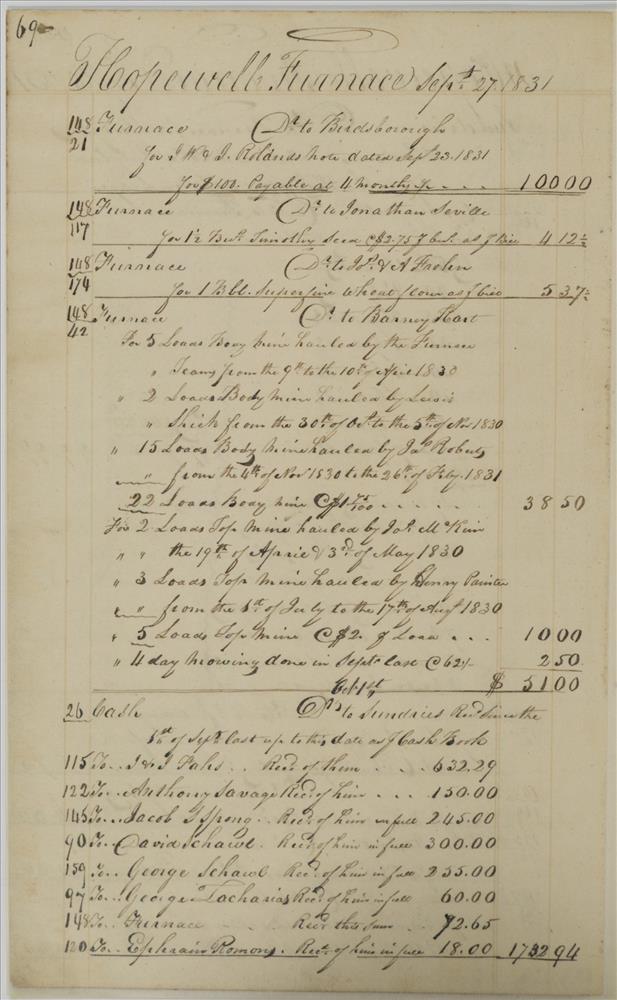 69
Hopewell Furnace Sept. 27. 1831
148 Furnace Dr. to Birdsborough
21
for J. W & J. Rolands note dated Sept 23. 1831
for $100. Payable at 4 months 100 00
148 Furnace Dr. to Jonathan Seville
117 for 1½ Bus. Timothy Seed @ $2.75 p bus. as p 4 12½
148 Furnace Dr. to Jos. & A Frolen
174 for 1 Bbl. Superfine Wheat flour as p 5 37½
148 Furnace Dr. to Barney Hart
42 For 5 Loads Body mine hauled by the Furnace
" Teams from the 9th to the 10th of April 1830
" 2 Loads Body mine hauled by Lewis
" Shick from the 30th of Oct. to the 5th of Nov 1830
" 15 Loads Body mine hauled by Jas Roberts
" from the 4th of Nov 1830 to the 26th of Feby. 1831
22 Loads Body mine @ $1 75/100 38 50
For 2 Loads Top Mine hauled by Jos. McKim
" " the 19th of Aprie & 3rd of May 1830
" 3 Loads Top mine hauled by Henry Painter
" " from the 1st of July to the 17th of Augt 1830
" 5 Loads Top mine @ $2. p Load 10 00
" 4 day mowing done in Septr last @ 62½ 2 50
Oct 1st $ 51 00
26 Cash Drs to Sundries Recd since the
1st of Septr last up to this date as p Cash Book
115 To J & J Fahs Recd. of them 632.29
122 To Anthony Savage Recd. of him 150.00
145 To Jacob G Spong Recd. of him in full 245.00
90 To David Schawl Recd. of him in full 300.00
159 To George Schawl Recd. of him in full 255.00
97 To George Zacharias Recd. of him in full 60.00
148 To Furnace Recd this sum 72.65
120 To Ephraim Romons Recd. of him in full 18.00 1732 94